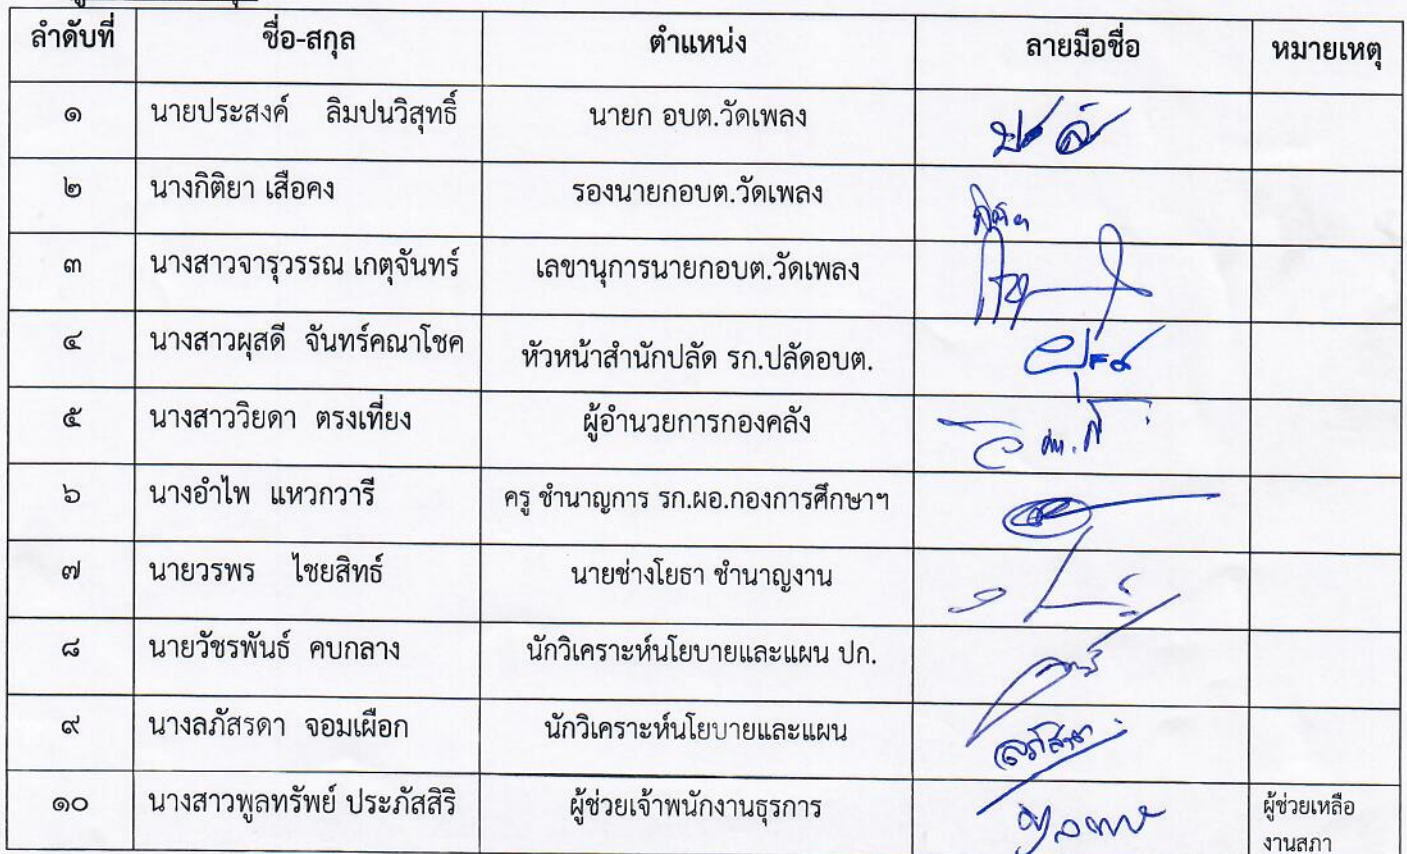 ลำดับที่ ชื่อ-สกุล ตำแหน่ง ลายมือชื่อ หมายเหตุ
๑ นายประสงค์ ลิมปนวิสุทธิ์ นายก อบต.วัดเพลง
๒ นางกิติยา เสือคง รองนายกอบต.วัดเพลง
๓ นางสาวจารุวรรณ เกตุจันทร์ เลขานุการนายกอบต.วัดเพลง
๔ นางสาวผุสดี จันทร์คณาโชค หัวหน้าสำนักปลัด รก.ปลัดอบต.
๕ นางสาววิยดา ตรงเที่ยง ผู้อำนวยการกองคลัง
๖ นางอำไพ แหวกวารี ครู ชำนาญการ รก.ผอ.กองการศึกษาฯ
๗ นายวรพร ไชยสิทธ์ นายช่างโยธา ชำนาญงาน
๘ นายวัชรพันธ์ คบกลาง นักวิเคราะห์นโยบายและแผน ปก.
๙ นางลภัสรดา จอมเผือก นักวิเคราะห์นโยบายและแผน
๑๐ นางสาวพูลทรัพย์ ประภัสสิริ ผู้ช่วยเจ้าพนักงานธุรการ ผู้ช่วยเหลือ
งานสภา